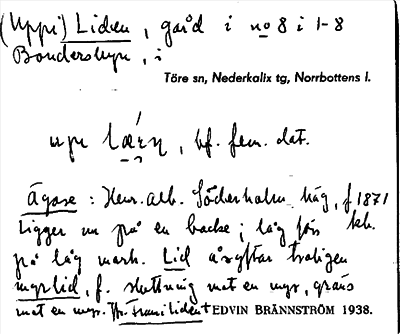 (Uppi) Liden, gård i no 8 i 1-8
Bondersbyn, i
Töre sn, Nederkalix tg, Norrbottens l.
upi læ´rn, bf. fem. dat.
Ägare: Henr. Alb. Söderholm häg, f 1871
Ligger nu på en backe; låg förr kh.
på låg mark. Lid åsyftar troligen
myrlid, f. sluttning mot en myr, gräns
mot en myr. Jfr. Framiliden + EDVIN BRÄNNSTRÖM 1938.